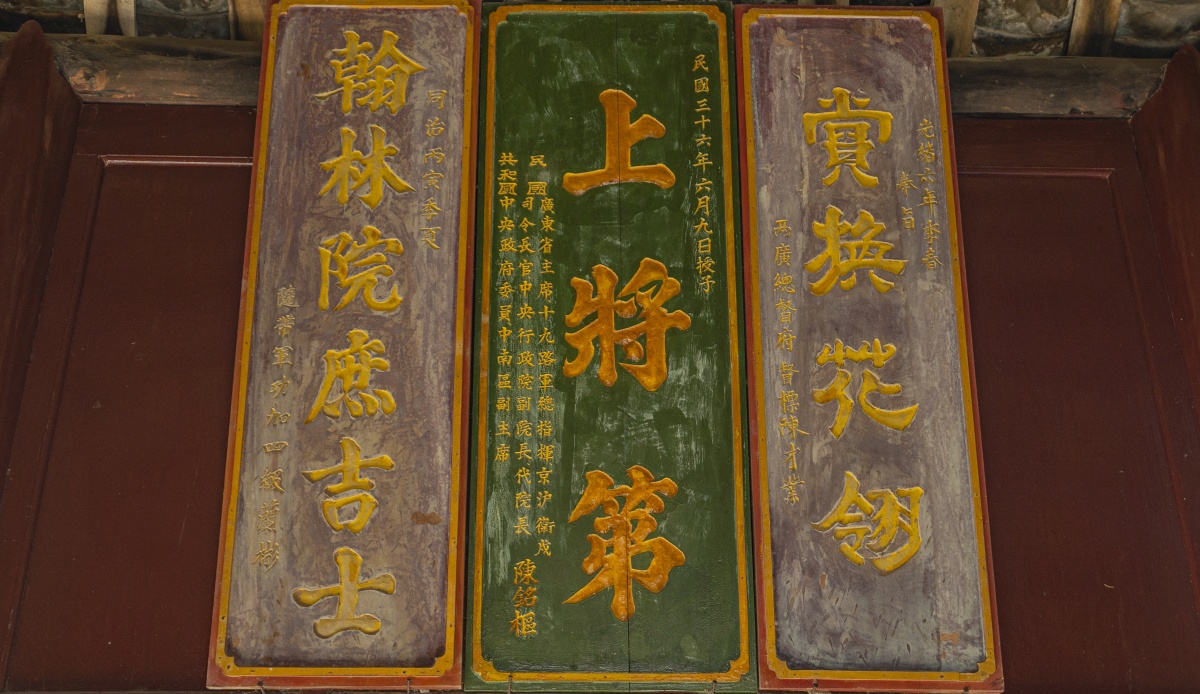 賞換花翎
光緒六年季春
奉旨
兩廣總督府督標陳才業
上將第
民國三十六年六月九日授予
民國廣東省主席十九路軍總指揮京沪衛戍
司令長官中央行政院副院長代院長 陳銘樞
共和國中央政府委員中南區副主席
翰林院庶吉士
同治丙寅季夏
隨带軍功加四級